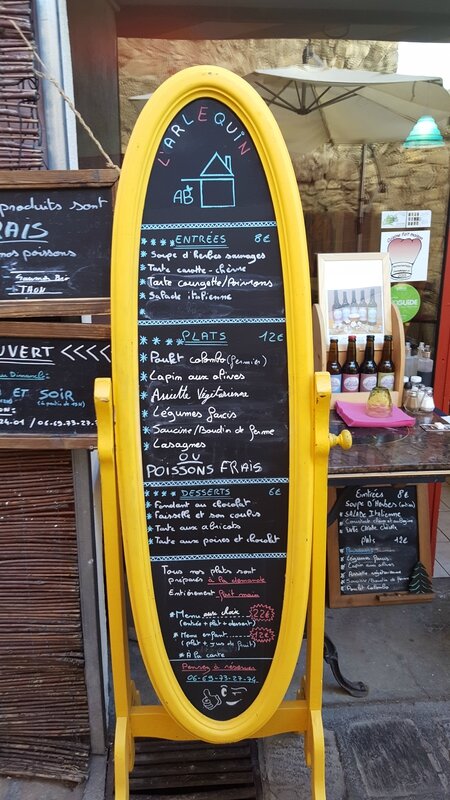 L'ARLEQUIN
AB
ENTRÉES 8€
Soupe d'herbes sauvages
Tarte carotte-chèvre
Tarte courgette/Poivrons
Salade italienne
PLATS 12€
Poulet colombo (fermier)
Lapin aux olives
Assiette Végétarienne
Légumes farcis
Saucisse/Boudin de ferme
Lasagnes
OU
POISSONS FRAIS
DESSERTS 6€
Fondant au chocolat
Faisselle et son coulis
Tarte aux abricots
Tarte aux poires et chocolat
Tous nos plats sont
préparés à la demande
Entièrement fait main
Menu aux choix 22€
(entrée + plat + dessert)
Menu enfant 12€
(plat + jus de fruit)
A la carte
Pensez à réserver
06-69-73-27-74
produits sont
RAIS
nos poissons
OUVERT <<<<
ET SOIR
Entrées 8€
Soupe D'Herbes
SALADE Italienne
Plats 12€
Légumes farcis
Lapin aux olives
Assiette végétarienne
Saucisse/Boudin de ferme
Poulet Colombo